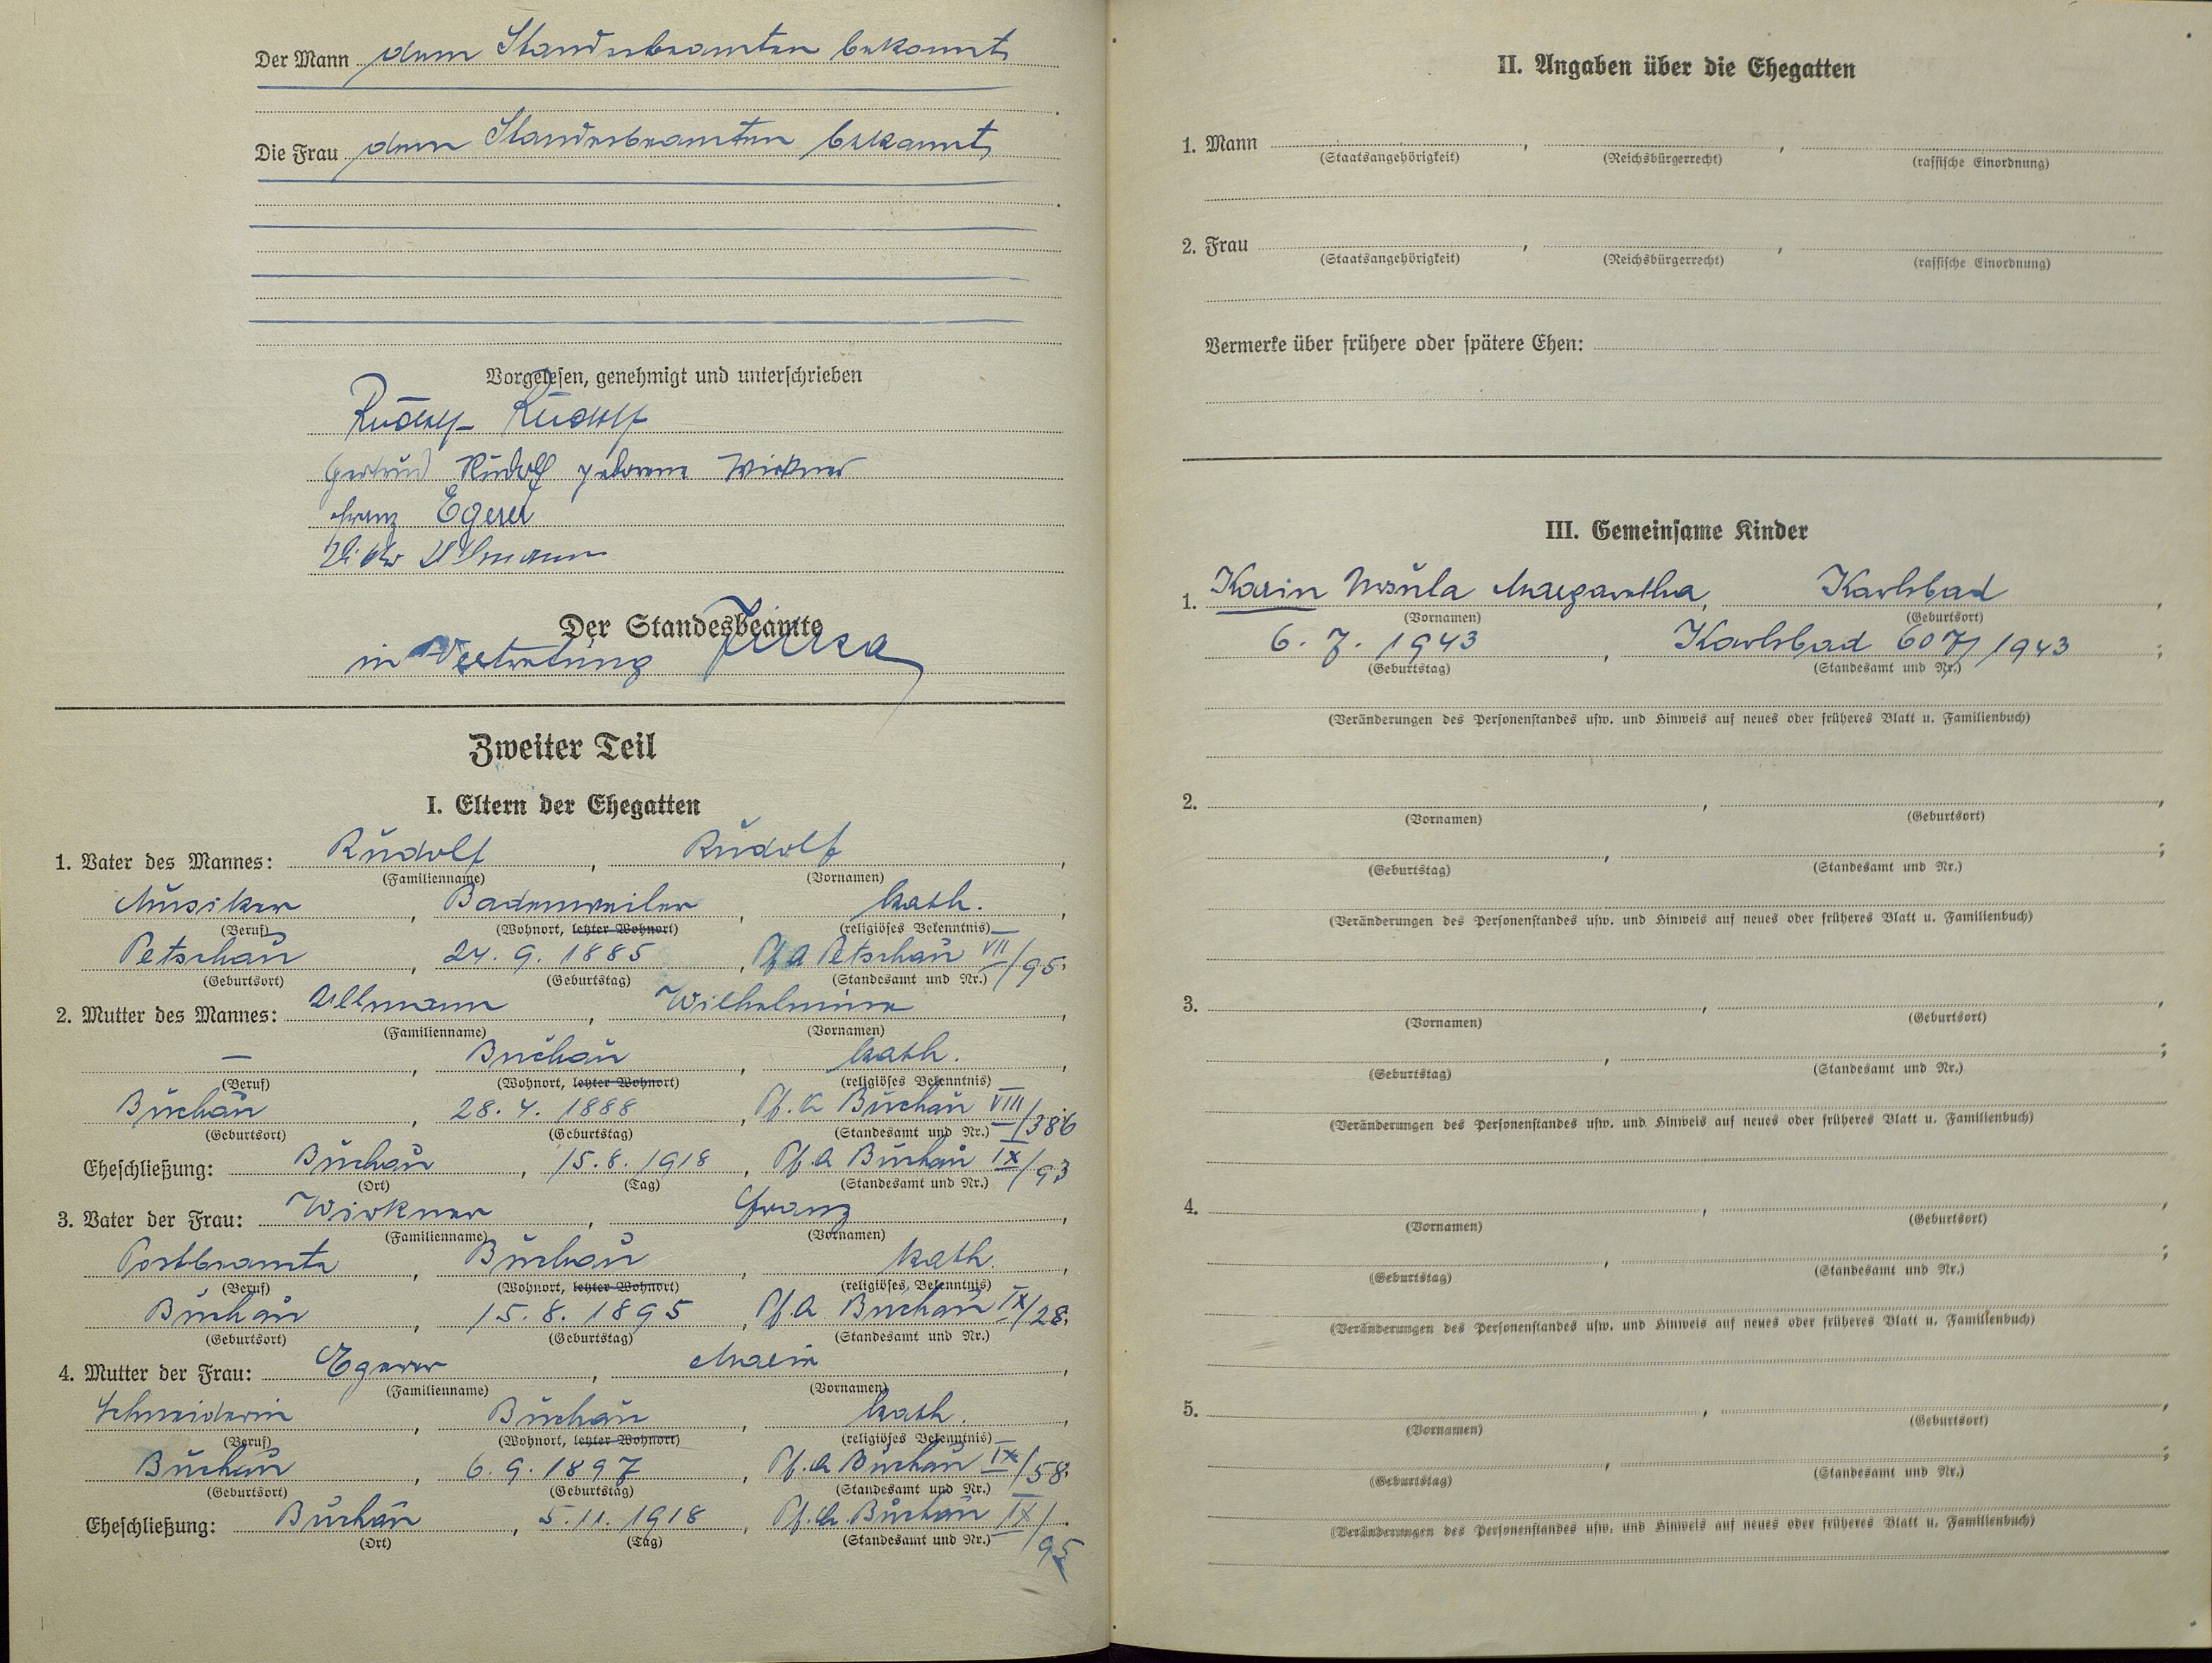 Der Mann dem Standesbeamten bekannt
Die Frau dem Standesbeamten bekannt
Vorgelesen, genehmigt und unterschrieben
Rudolf Rudolf
Gertrud Rudolf geborene Wirkner
Franz Egerer
Ullmann
Der Standesbeamte
in Vertretung
Zweiter Teil
I. Eltern der Ehegatten
1. Vater des Mannes: Rudolf, Rudolf,
(Familienname) (Vornamen)
Musiker, Badenweiler, kath.,
(Beruf) (Wohnort, letzter Wohnort) (religiöses Bekenntnis)
Petschau, 24. 9. 1885, Pf.A Petschau VII/95.
(Geburtsort) (Geburtstag) (Standesamt und Nr.)
2. Mutter des Mannes: Ullmann, Wilhelmine,
(Familienname) (Vornamen)
—, Buchau, kath.,
(Beruf) (Wohnort, letzter Wohnort) (religiöses Bekenntnis)
Buchau, 28. 4. 1888, Pf.A Buchau VIII/386
(Geburtsort) (Geburtstag) (Standesamt und Nr.)
Eheschließung: Buchau, 15. 8. 1918, Pf.A Buchau IX/93
(Ort) (Tag) (Standesamt und Nr.)
3. Vater der Frau: Wirkner, Franz,
(Familienname) (Vornamen)
Postbeamte, Buchau, kath.,
(Beruf) (Wohnort, letzter Wohnort) (religiöses Bekenntnis)
Buchau, 15. 8. 1895, Pf.A. Buchau IX/28.
(Geburtsort) (Geburtstag) (Standesamt und Nr.)
4. Mutter der Frau: Egerer, Marie,
(Familienname) (Vornamen)
Schneiderin, Buchau, kath.,
(Beruf) (Wohnort, letzter Wohnort) (religiöses Bekenntnis)
Buchau, 6. 9. 1897, Pf.A Buchau IX/58.
(Geburtsort) (Geburtstag) (Standesamt und Nr.)
Eheschließung: Buchau, 5. 11. 1918, Pf.A. Buchau IX/95
(Ort) (Tag) (Standesamt und Nr.)
II. Angaben über die Ehegatten
1. Mann
(Staatsangehörigkeit) (Reichsbürgerrecht) (rassische Einordnung)
2. Frau
(Staatsangehörigkeit) (Reichsbürgerrecht) (rassische Einordnung)
Vermerke über frühere oder spätere Ehen:
III. Gemeinsame Kinder
1. Karin Ursula Margaretha, Karlsbad,
(Vornamen) (Geburtsort)
6. 7. 1943, Karlsbad 607/1943;
(Geburtstag) (Standesamt und Nr.)
(Veränderungen des Personenstandes usw. und Hinweis auf neues oder früheres Blatt u. Familienbuch)
2.
(Vornamen) (Geburtsort)
(Geburtstag) (Standesamt und Nr.)
(Veränderungen des Personenstandes usw. und Hinweis auf neues oder früheres Blatt u. Familienbuch)
3.
(Vornamen) (Geburtsort)
(Geburtstag) (Standesamt und Nr.)
(Veränderungen des Personenstandes usw. und Hinweis auf neues oder früheres Blatt u. Familienbuch)
4.
(Vornamen) (Geburtsort)
(Geburtstag) (Standesamt und Nr.)
(Veränderungen des Personenstandes usw. und Hinweis auf neues oder früheres Blatt u. Familienbuch)
5.
(Vornamen) (Geburtsort)
(Geburtstag) (Standesamt und Nr.)
(Veränderungen des Personenstandes usw. und Hinweis auf neues oder früheres Blatt u. Familienbuch)